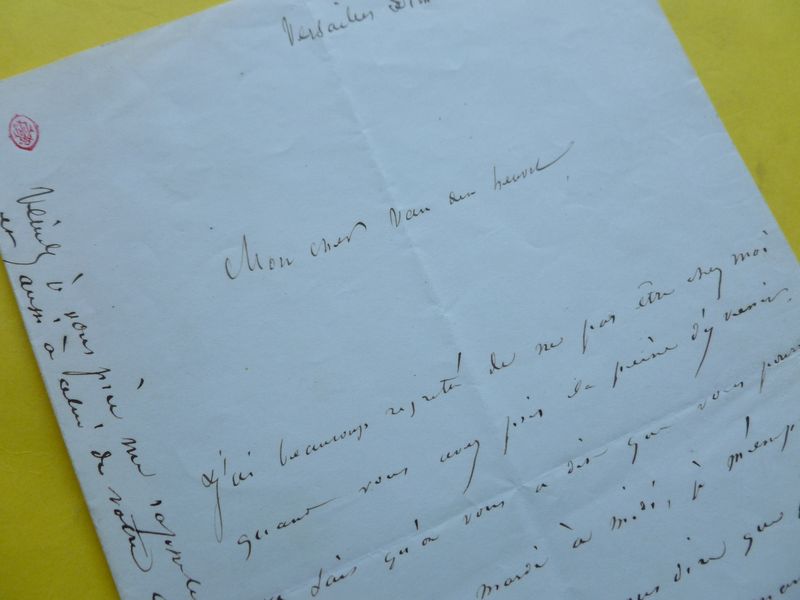 Versailles
Mon cher Van den heuvel,
J'ai beaucoup regretté de ne pas être chez moi
quand vous avez pris la peine d'y venir.
sais qu'on vous a dit que vous
mardi à midi, je
dire que
Veuillez je vous prie me rappeler
et aussi à celui de votre